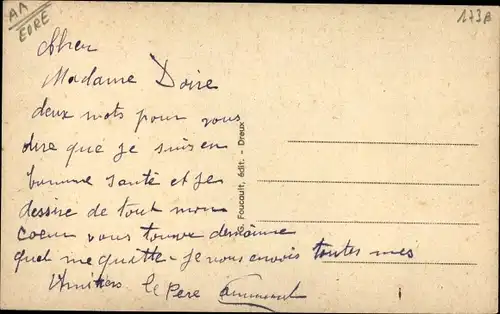 AA
EURE
173A
Cher
Madame Doire
deux mots pour vous
dire que je suis en
bonne santé et je
dessire de tout mon
coeur vous trouve de même
quel me quitte. je vous envois toutes mes
le Pere
G. Foucault, édit. - Dreux